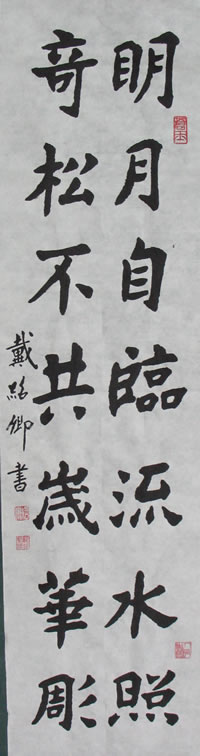 明月自臨流水照
奇松不共歲華彫
戴紹卿書